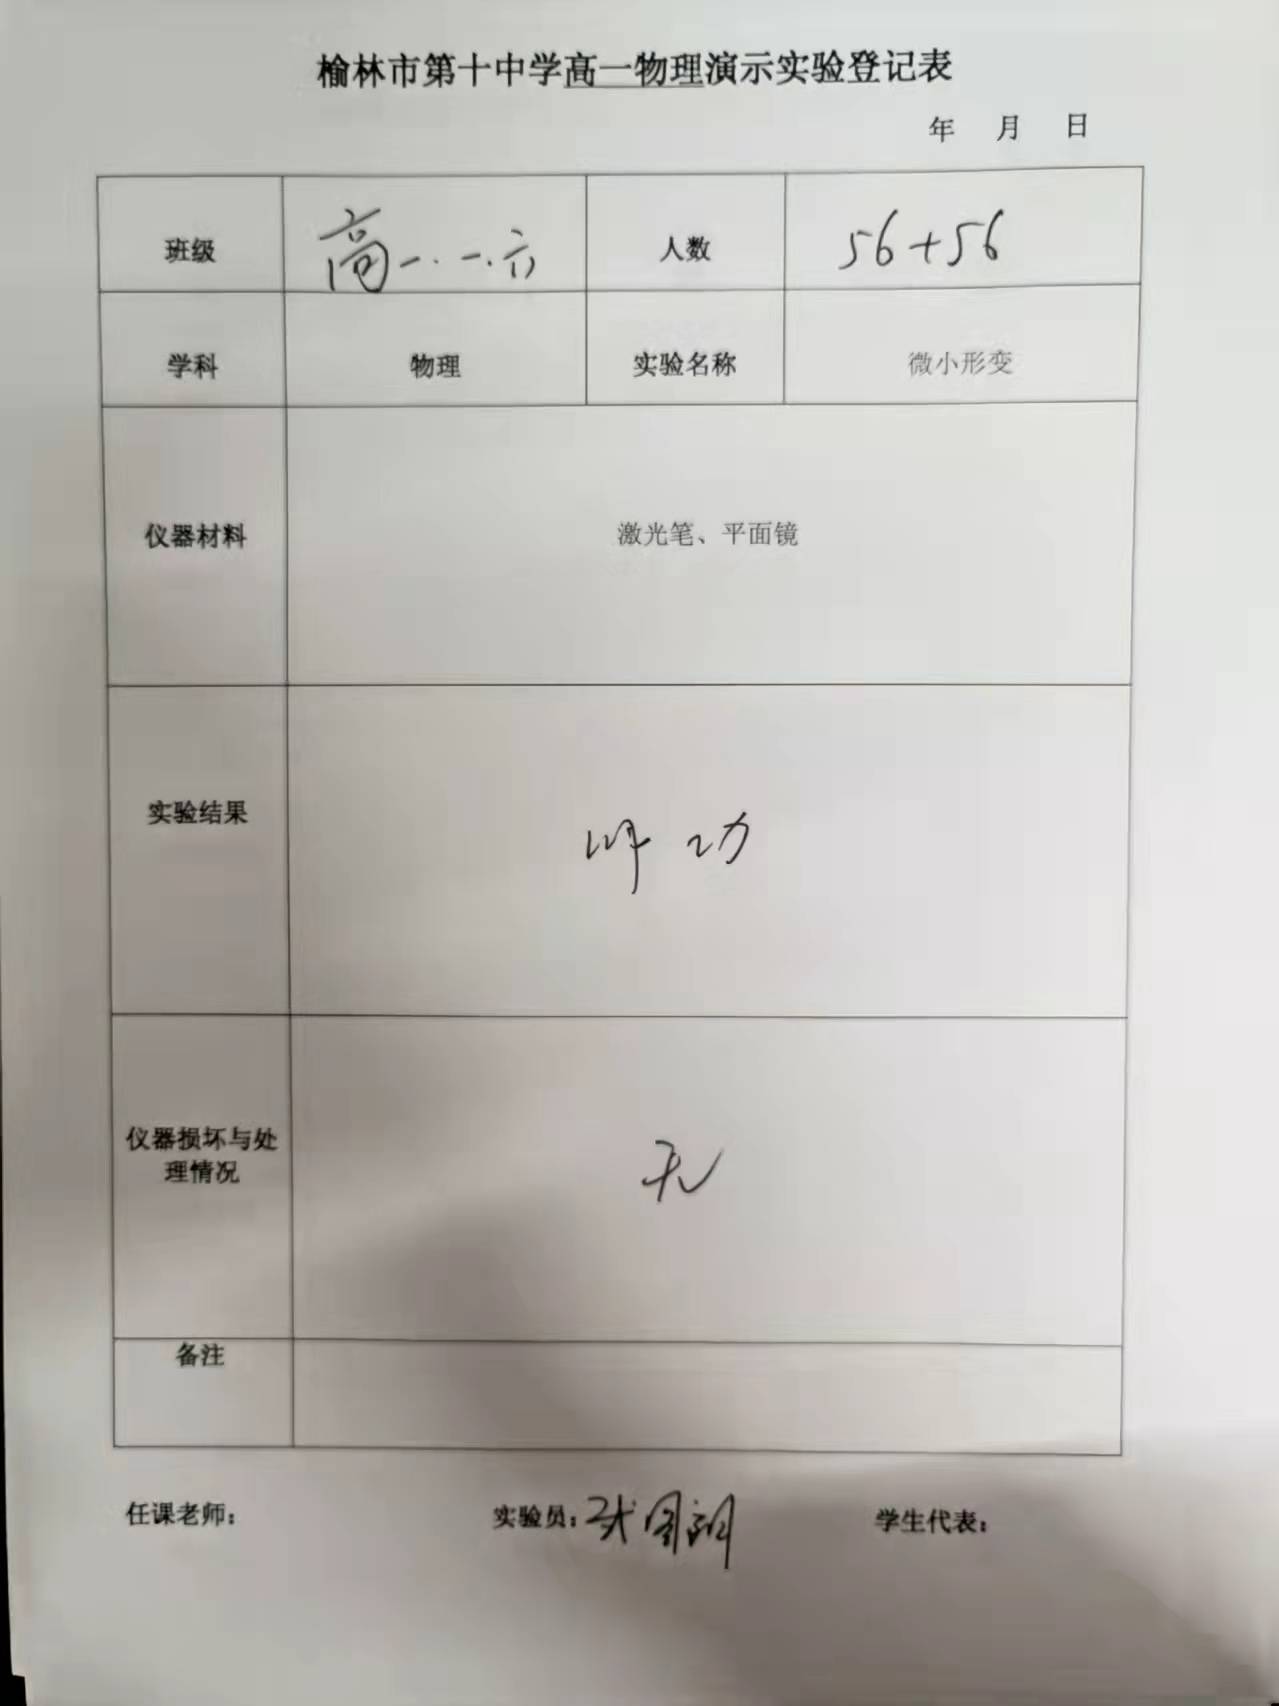 榆林市第十中学高一物理演示实验登记表
年 月 日
班级 高一.一.六 人数 56+56
学科 物理 实验名称 微小形变
仪器材料 激光笔、平面镜
实验结果 功
仪器损坏与处
理情况 无
备注
任课老师: 实验员:张 学生代表: